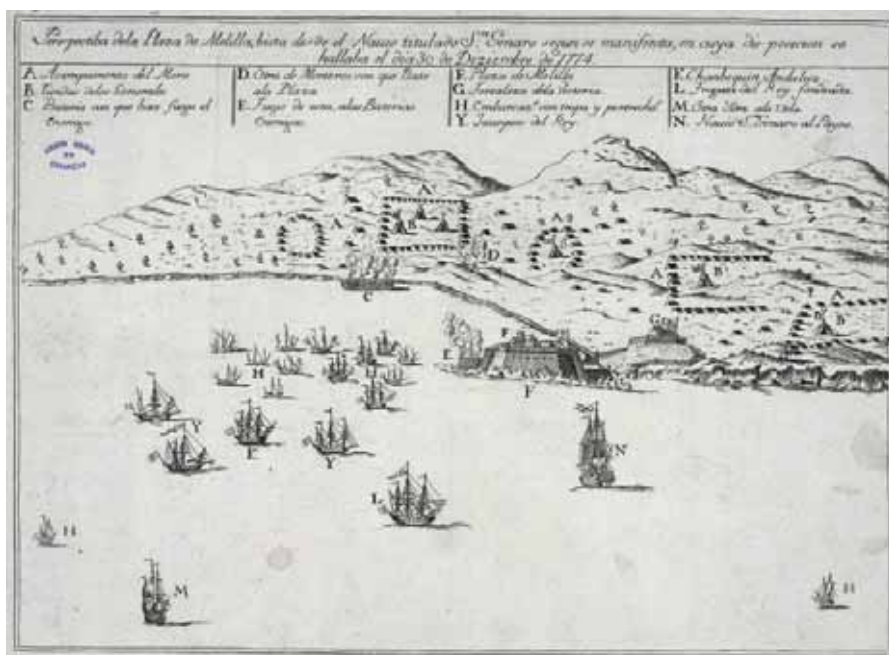 Perspectiba dela Plaza de Melilla, bista desde el Navio titulado Sn. Genaro segun se manifiesta, en cuya disposicion se
hallaba el dia 30 de Deziembre de 1774.
A. Acampamento del Moro
B. Tiendas delos Generales
C. Bateria con que hace fuego el
Enemigo.
D. Otra de Morteros con que Bate
ala Plaza
E. Fuego de esta, alas Baterias
Enemigas.
F. Plaza de Melilla
G. Fortaleza dela Victoria
H. Embarcaz.s con tropa y pertrechos
Y. Jabeques del Rey
K. Chambequin Andaluz
L. Fragata del Rey fondeada
M. Otra Idem ala Vela
N. Navio S. Genaro al Payro.
A
A
B
A
A
B
A
B
C
D
G
E
F
F
H
H
Y
F
Y
L
N
H
M
H